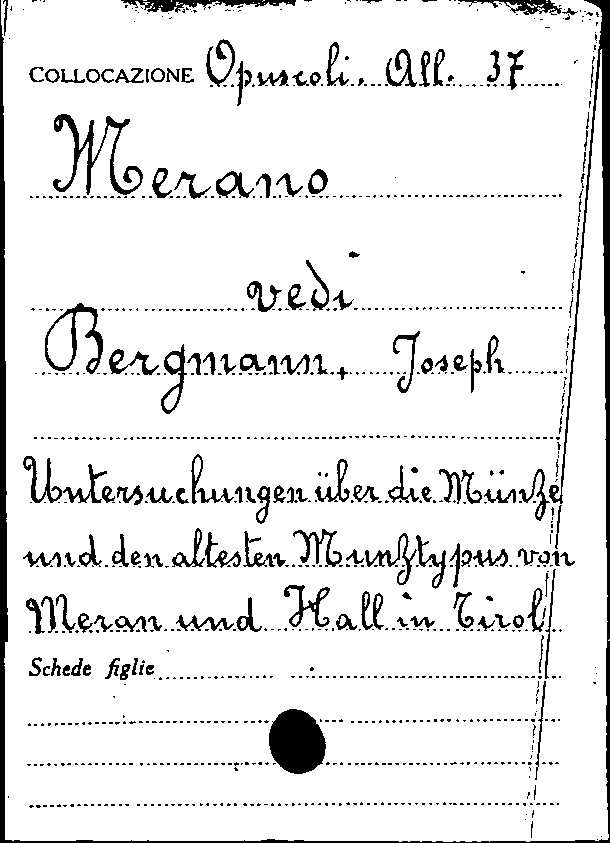 COLLOCAZIONE Opuscoli. All. 37
Merano
vedi
Bergmann, Joseph
Untersuchungen über die Münze
und den altesten Munztypus von
Meran und Hall in Tirol
Schede figlie